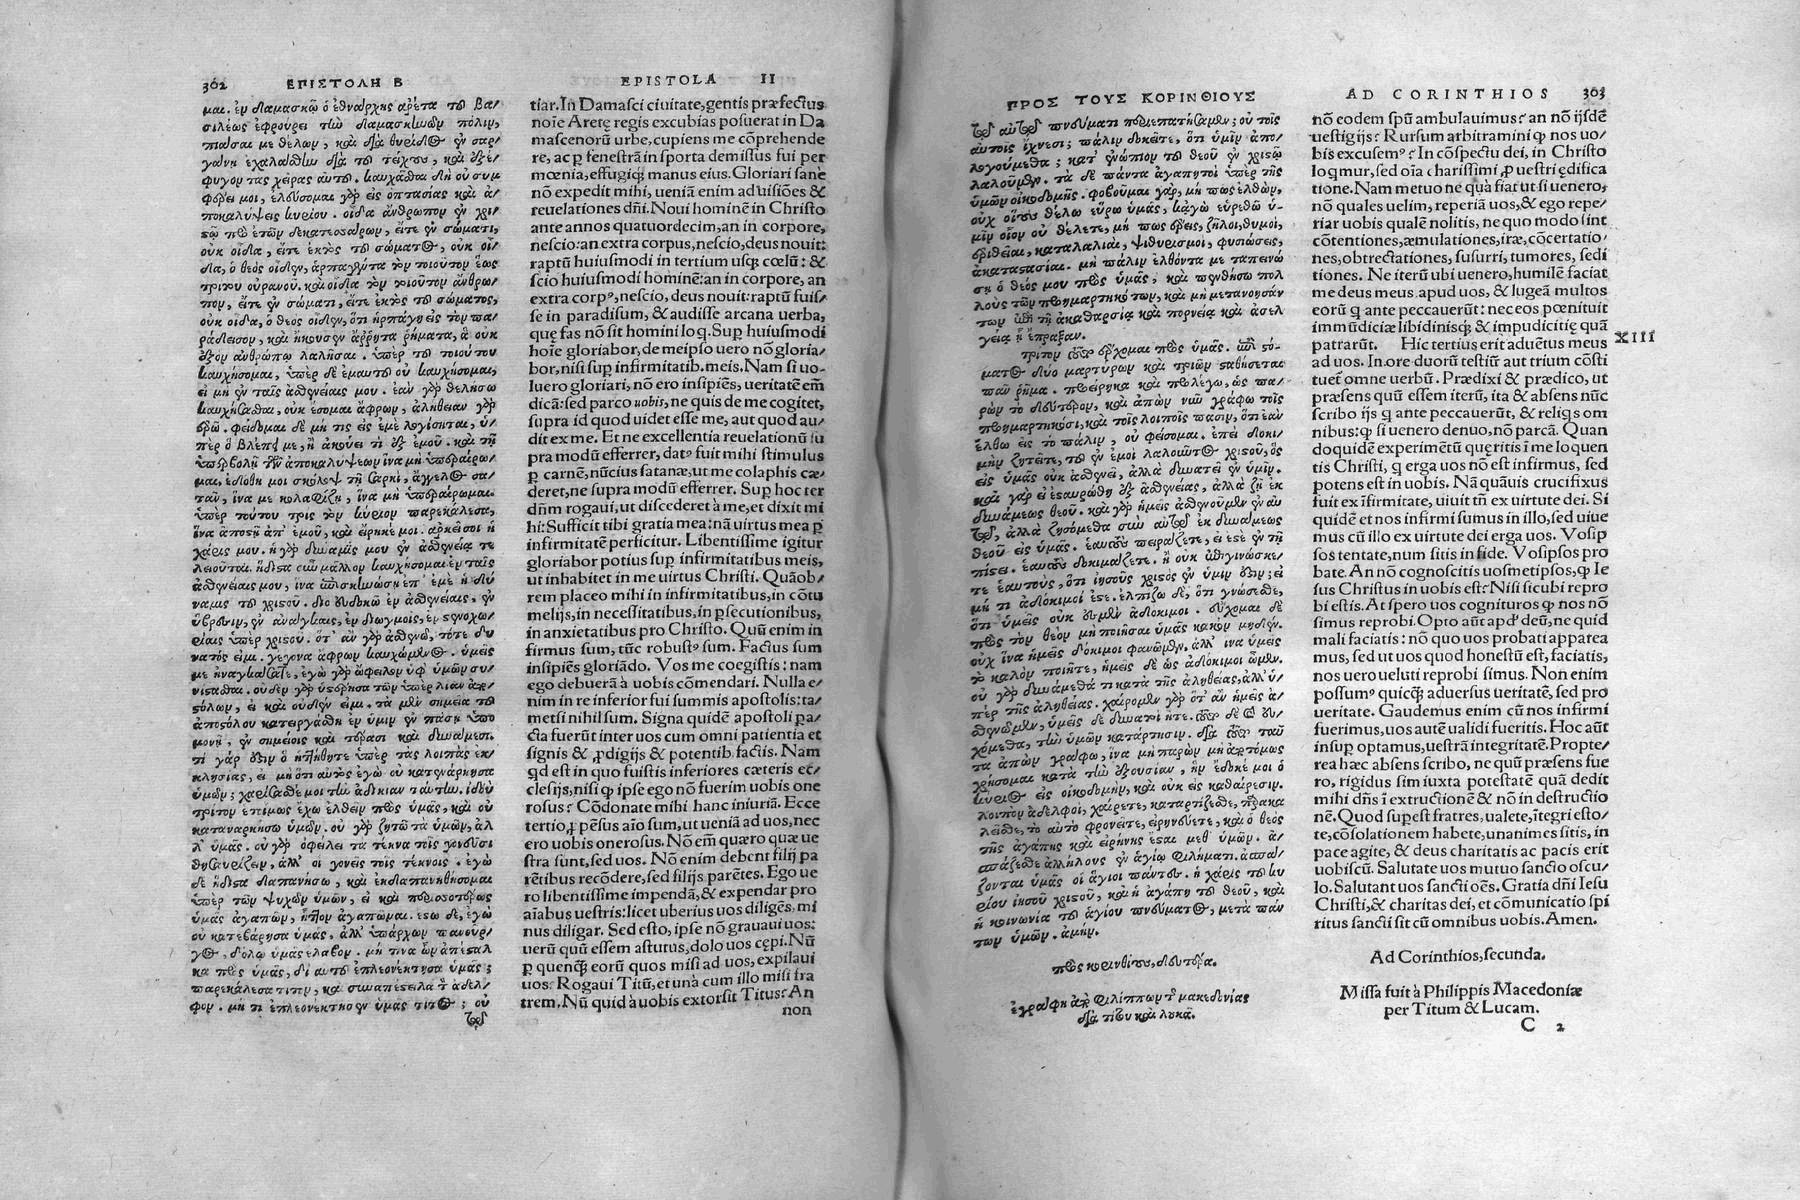 362 ΕΠΙΣΤΟΛΗ Β
μαι. ἐν δαμασκῷ ὁ ἐθνάρχης ἀρέτα τοῦ βα/
σιλέως ἐφρούρει τὴν δαμασκηνῶν πόλιν,
πιάσαι με θέλων, καὶ διὰ θυρίδος ἐν σαρ/
γάνῃ ἐχαλάσθην διὰ τοῦ τείχους, καὶ ἐξέ/
φυγον τὰς χεῖρας αὐτοῦ. καυχᾶσθαι δὴ οὐ συμ
φέρει μοι, ἐλεύσομαι γὰρ εἰς ὀπτασίας καὶ ἀ/
ποκαλύψεις κυρίου. οἶδα ἄνθρωπον ἐν χρι/
στῷ πρὸ ἐτῶν δεκατεσσάρων, εἴτε ἐν σώματι,
οὐκ οἶδα, εἴτε ἐκτὸς τοῦ σώματος, οὐκ οἶ/
δα, ὁ θεὸς οἶδεν, ἁρπαγέντα τὸν τοιοῦτον ἕως
τρίτου οὐρανοῦ. καὶ οἶδα τὸν τοιοῦτον ἄνθρω/
πον, εἴτε ἐν σώματι, εἴτε ἐκτὸς τοῦ σώματος,
οὐκ οἶδα, ὁ θεὸς οἶδεν, ὅτι ἡρπάγη εἰς τὸν πα/
ράδεισον, καὶ ἤκουσεν ἄρρητα ῥήματα, ἃ οὐκ
ἐξὸν ἀνθρώπῳ λαλῆσαι. ὑπὲρ τοῦ τοιούτου
καυχήσομαι, ὑπὲρ δὲ ἐμαυτοῦ οὐ καυχήσομαι,
εἰ μὴ ἐν ταῖς ἀσθενείαις μου. ἐὰν γὰρ θελήσω
καυχήσασθαι, οὐκ ἔσομαι ἄφρων, ἀλήθειαν γὰρ
ἐρῶ. φείδομαι δὲ μή τις εἰς ἐμὲ λογίσηται, ὑ/
πὲρ ὃ βλέπει με, ἢ ἀκούει τι ἐξ ἐμοῦ. καὶ τῇ
ὑπερβολῇ τῶν ἀποκαλύψεων ἵνα μὴ ὑπεραίρω/
μαι, ἐδόθη μοι σκόλοψ τῇ σαρκί, ἄγγελος σα/
τᾶν, ἵνα με κολαφίζῃ, ἵνα μὴ ὑπεραίρωμαι.
ὑπὲρ τούτου τρὶς τὸν κύριον παρεκάλεσα,
ἵνα ἀποστῇ ἀπ' ἐμοῦ, καὶ εἴρηκέ μοι. ἀρκεῖ σοι ἡ
χάρις μου. ἡ γὰρ δύναμίς μου ἐν ἀσθενείᾳ τε
λειοῦται. ἥδιστα οὖν μᾶλλον καυχήσομαι ἐν ταῖς
ἀσθενείαις μου, ἵνα ἐπισκηνώσῃ ἐπ' ἐμὲ ἡ δύ
ναμις τοῦ χριστοῦ. διὸ εὐδοκῶ ἐν ἀσθενείαις, ἐν
ὕβρεσιν, ἐν ἀνάγκαις, ἐν διωγμοῖς, ἐν στενοχω/
ρίαις ὑπὲρ χριστοῦ. ὅτ' ἂν γὰρ ἀσθενῶ, τότε δυ
νατός εἰμι. γέγονα ἄφρων καυχώμενος. ὑμεῖς
με ἠναγκάσατε, ἐγὼ γὰρ ὤφειλον ὑφ' ὑμῶν συ/
νίστασθαι. οὐδὲν γὰρ ὑστέρησα τῶν ὑπὲρ λίαν ἀπο/
στόλων, εἰ καὶ οὐδέν εἰμι. τὰ μὲν σημεῖα τοῦ
ἀποστόλου κατειργάσθη ἐν ὑμῖν ἐν πάσῃ ὑπο
μονῇ, ἐν σημείοις καὶ τέρασι καὶ δυνάμεσι.
τί γάρ ἐστιν ὃ ἡττήθητε ὑπὲρ τὰς λοιπὰς ἐκ/
κλησίας, εἰ μὴ ὅτι αὐτὸς ἐγὼ οὐ κατενάρκησα
ὑμῶν; χαρίσασθέ μοι τὴν ἀδικίαν ταύτην. ἰδοὺ
τρίτον ἑτοίμως ἔχω ἐλθεῖν πρὸς ὑμᾶς, καὶ οὐ
καταναρκήσω ὑμῶν. οὐ γὰρ ζητῶ τὰ ὑμῶν, ἀλ
λ' ὑμᾶς. οὐ γὰρ ὀφείλει τὰ τέκνα τοῖς γονεῦσι
θησαυρίζειν, ἀλλ' οἱ γονεῖς τοῖς τέκνοις. ἐγὼ
δὲ ἥδιστα δαπανήσω, καὶ ἐκδαπανηθήσομαι
ὑπὲρ τῶν ψυχῶν ὑμῶν, εἰ καὶ περισσοτέρως
ὑμᾶς ἀγαπῶν, ἧττον ἀγαπῶμαι. ἔστω δέ, ἐγὼ
οὐ κατεβάρησα ὑμᾶς, ἀλλ' ὑπάρχων πανοῦρ/
γος, δόλῳ ὑμᾶς ἔλαβον. μή τινα ὧν ἀπέσταλ
κα πρὸς ὑμᾶς, δι' αὐτοῦ ἐπλεονέκτησα ὑμᾶς;
παρεκάλεσα τίτον, καὶ συναπέστειλα τὸν ἀδελ/
φόν. μή τι ἐπλεονέκτησεν ὑμᾶς τίτος; οὐ
τῷ
EPISTOLA II
tiar. In Damasci ciuitate, gentis præfectus
noīe Aretę regis excubias posuerat in Da
mascenorū urbe, cupiens me cōprehende
re, ac p fenestrā in sporta demissus fui per
mœnia, effugiq; manus eius. Gloriari sane
nō expedit mihi, ueniā enim ad uisiōes &
reuelationes dñi. Noui hominē in Christo
ante annos quatuordecim, an in corpore,
nescio: an extra corpus, nescio, deus nouit:
raptū huiusmodi in tertium usq; cœlū: &
scio huiusmodi hominē: an in corpore, an
extra corpꝰ, nescio, deus nouit: raptū fuis/
se in paradisum, & audisse arcana uerba,
quę fas nō sit homini loq. Sup huiusmodi
hoīe gloriabor, de meipso uero nō gloria/
bor, nisi sup infirmitatib. meis. Nam si uo-
luero gloriari, nō ero insipiēs, ueritatē em̄
dicā: sed parco uobis, ne quis de me cogitet,
supra id quod uidet esse me, aut quod au/
dit ex me. Et ne excellentia reuelationū su
pra modū efferrer, datꝰ fuit mihi stimulus
p carnē, nūcius satanæ, ut me colaphis cæ/
deret, ne supra modū efferrer. Sup hoc ter
dñm rogaui, ut discederet à me, et dixit mi
hi: Sufficit tibi gratia mea: nā uirtus mea p
infirmitatē perficitur. Libentissime igitur
gloriabor potius sup infirmitatibus meis,
ut inhabitet in me uirtus Christi. Quāob/
rem placeo mihi in infirmitatibus, in cōtu
melijs, in necessitatibus, in psecutionibus,
in anxietatibus pro Christo. Quū enim in
firmus sum, tūc robustꝰ sum. Factus sum
insipiēs gloriādo. Vos me coegistis: nam
ego debuerā à uobis cōmendari. Nulla e/
nim in re inferior fui summis apostolis: ta/
metsi nihil sum. Signa quidē apostoli pa/
cta fuerūt inter uos cum omni patientia et
signis & ꝓdigijs & potentib. factis. Nam
qd est in quo fuistis inferiores cæteris ec/
clesijs, nisi ꝙ ipse ego nō fuerim uobis one
rosus? Cōdonate mihi hanc iniuriā. Ecce
tertio, ꝓpēsus aīo sum, ut ueniā ad uos, nec
ero uobis onerosus. Nō em̄ quæro quæ ue
stra sunt, sed uos. Nō enim debent filij pa
rētibus recōdere, sed filijs parētes. Ego ue
ro libentissime impendā, & expendar pro
aīabus uestris: licet uberius uos diligēs, mi
nus diligar. Sed esto, ipse nō grauaui uos:
uerū quū essem astutus, dolo uos cępi. Nū
p quenꝗ̃ eorū quos misi ad uos, expilaui
uos? Rogaui Titū, et unà cum illo misi fra
trem. Nū quid à uobis extorsit Titus? An
non
ΠΡΟΣ ΤΟΥΣ ΚΟΡΙΝΘΙΟΥΣ
τῷ αὐτῷ πνεύματι περιεπατήσαμεν; οὐ τοῖς
αὐτοῖς ἴχνεσι; πάλιν δοκεῖτε, ὅτι ὑμῖν ἀπο/
λογούμεθα; κατ' ἐνώπιον τοῦ θεοῦ ἐν χριστῷ
λαλοῦμεν. τὰ δὲ πάντα ἀγαπητοὶ ὑπὲρ τῆς
ὑμῶν οἰκοδομῆς. φοβοῦμαι γάρ, μή πως ἐλθών,
οὐχ οἵους θέλω εὕρω ὑμᾶς, κἀγὼ εὑρεθῶ ὑ-
μῖν οἷον οὐ θέλετε, μή πως ἔρεις, ζῆλοι, θυμοί,
ἐριθεῖαι, καταλαλιαί, ψιθυρισμοί, φυσιώσεις,
ἀκαταστασίαι. μὴ πάλιν ἐλθόντα με ταπεινώ
σῃ ὁ θεός μου πρὸς ὑμᾶς, καὶ πενθήσω πολ
λοὺς τῶν προημαρτηκότων, καὶ μὴ μετανοησάν
των ἐπὶ τῇ ἀκαθαρσίᾳ καὶ πορνείᾳ καὶ ἀσελ
γείᾳ ᾗ ἔπραξαν.
τρίτον τοῦτο ἔρχομαι πρὸς ὑμᾶς. ἐπὶ στό-
ματος δύο μαρτύρων καὶ τριῶν σταθήσεται
πᾶν ῥῆμα. προείρηκα καὶ προλέγω, ὡς πα/
ρὼν τὸ δεύτερον, καὶ ἀπὼν νῦν γράφω τοῖς
προημαρτηκόσι, καὶ τοῖς λοιποῖς πᾶσιν, ὅτι ἐὰν
ἔλθω εἰς τὸ πάλιν, οὐ φείσομαι. ἐπεὶ δοκι/
μὴν ζητεῖτε, τοῦ ἐν ἐμοὶ λαλοῦντος χριστοῦ, ὃς
εἰς ὑμᾶς οὐκ ἀσθενεῖ, ἀλλὰ δυνατεῖ ἐν ὑμῖν.
καὶ γὰρ εἰ ἐσταυρώθη ἐξ ἀσθενείας, ἀλλὰ ζῇ ἐκ
δυνάμεως θεοῦ. καὶ γὰρ ἡμεῖς ἀσθενοῦμεν ἐν αὐ
τῷ, ἀλλὰ ζησόμεθα σὺν αὐτῷ ἐκ δυνάμεως
θεοῦ εἰς ὑμᾶς. ἑαυτοὺς πειράζετε, εἰ ἐστὲ ἐν τῇ
πίστει. ἑαυτοὺς δοκιμάζετε. ἢ οὐκ ἐπιγινώσκε/
τε ἑαυτούς, ὅτι ἰησοῦς χριστὸς ἐν ὑμῖν ἐστιν; εἰ
μή τι ἀδόκιμοί ἐστε. ἐλπίζω δέ, ὅτι γνώσεσθε,
ὅτι ὑμεῖς οὐκ ἐσμὲν ἀδόκιμοι. εὔχομαι δὲ
πρὸς τὸν θεὸν μὴ ποιῆσαι ὑμᾶς κακὸν μηδέν.
οὐχ ἵνα ἡμεῖς δόκιμοι φανῶμεν. ἀλλ' ἵνα ὑμεῖς
τὸ καλὸν ποιῆτε, ἡμεῖς δὲ ὡς ἀδόκιμοι ὦμεν.
οὐ γὰρ δυνάμεθά τι κατὰ τῆς ἀληθείας, ἀλλ' ὑ/
πὲρ τῆς ἀληθείας. χαίρομεν γὰρ ὅτ' ἂν ἡμεῖς ἀ/
σθενῶμεν, ὑμεῖς δὲ δυνατοὶ ἦτε. τοῦτο δὲ καὶ εὐ/
χόμεθα, τὴν ὑμῶν κατάρτισιν. διὰ τοῦτο ταῦ
τα ἀπὼν γράφω, ἵνα μὴ παρὼν μὴ ἀποτόμως
χρήσομαι κατὰ τὴν ἐξουσίαν, ἣν ἔδωκέ μοι ὁ
κύριος εἰς οἰκοδομήν, καὶ οὐκ εἰς καθαίρεσιν.
λοιπὸν ἀδελφοί, χαίρετε, καταρτίζεσθε, παρακα
λεῖσθε, τὸ αὐτὸ φρονεῖτε, εἰρηνεύετε, καὶ ὁ θεὸς
τῆς ἀγάπης καὶ εἰρήνης ἔσται μεθ' ὑμῶν. ἀ/
σπάζεσθε ἀλλήλους ἐν ἁγίῳ φιλήματι. ἀσπά/
ζονται ὑμᾶς οἱ ἅγιοι πάντες. ἡ χάρις τοῦ κυ
ρίου ἰησοῦ χριστοῦ, καὶ ἡ ἀγάπη τοῦ θεοῦ, καὶ
ἡ κοινωνία τοῦ ἁγίου πνεύματος, μετὰ πάν
των ὑμῶν. ἀμήν.
πρὸς κορινθίους, δευτέρα.
ἐγράφη ἀπὸ φιλίππων τῆς μακεδονίας
διὰ τίτου καὶ λουκᾶ.
AD CORINTHIOS 363
nō eodem spū ambulauimus? an nō ijsdē
uestigijs? Rursum arbitramini ꝙ nos uo/
bis excusemꝰ? In cōspectu dei, in Christo
loqmur, sed oīa charissimi ꝓ uestri ędifica
tione. Nam metuo ne quà fiat ut si uenero,
nō quales uelim, reperiā uos, & ego repe/
riar uobis qualē nolitis, ne quo modo sint
cōtentiones, æmulationes, iræ, cōcertatio/
nes, obtrectationes, susurri, tumores, sedi
tiones. Ne iterū ubi uenero, humilē faciat
me deus meus apud uos, & lugeā multos
eorū q ante peccauerūt: nec eos pœnituit
immūdiciæ libidinisq; & impudicitię quā
patrarūt. Hic tertius erit aduētus meus XIII
ad uos. In ore duorū testiū aut trium cōsti
tuet omne uerbū. Prædixi & prædico, ut
præsens quū essem iterū, ita & absens nūc
scribo ijs q ante peccauerūt, & reliqs om
nibus: ꝙ si uenero denuo, nō parcā. Quan
doquidē experimētū quęritis ī me loquen
tis Christi, q erga uos nō est infirmus, sed
potens est in uobis. Nā quāuis crucifixus
fuit ex īfirmitate, uiuit tñ ex uirtute dei. Si
quidē et nos infirmi sumus in illo, sed uiue
mus cū illo ex uirtute dei erga uos. Vosip
sos tentate, num sitis in fide. Vosipsos pro
bate. An nō cognoscitis uosmetipsos, ꝙ Ie
sus Christus in uobis est? Nisi sicubi repro
bi estis. At spero uos cognituros ꝙ nos nō
simus reprobi. Opto aūt apd' deū, ne quid
mali faciatis: nō quo uos probati apparea
mus, sed ut uos quod honestū est, faciatis,
nos uero ueluti reprobi simus. Non enim
possumꝰ quicꝗ̃ aduersus ueritatē, sed pro
ueritate. Gaudemus enim cū nos infirmi
fuerimus, uos autē ualidi fueritis. Hoc aūt
insup optamus, uestrā integritatē. Propte/
rea hæc absens scribo, ne quū præsens fue
ro, rigidus sim iuxta potestatē quā dedit
mihi dñs ī extructionē & nō in destructio
nē. Quod supest fratres, ualete, ītegri esto/
te, cōsolationem habete, unanimes sitis, in
pace agite, & deus charitatis ac pacis erit
uobiscū. Salutate uos mutuo sancto oscu/
lo. Salutant uos sancti oēs. Gratia dñi Iesu
Christi, & charitas dei, et cōmunicatio spi
ritus sancti sit cū omnibus uobis. Amen.
Ad Corinthios, secunda.
Missa fuit à Philippis Macedoniæ
per Titum & Lucam.
C 2